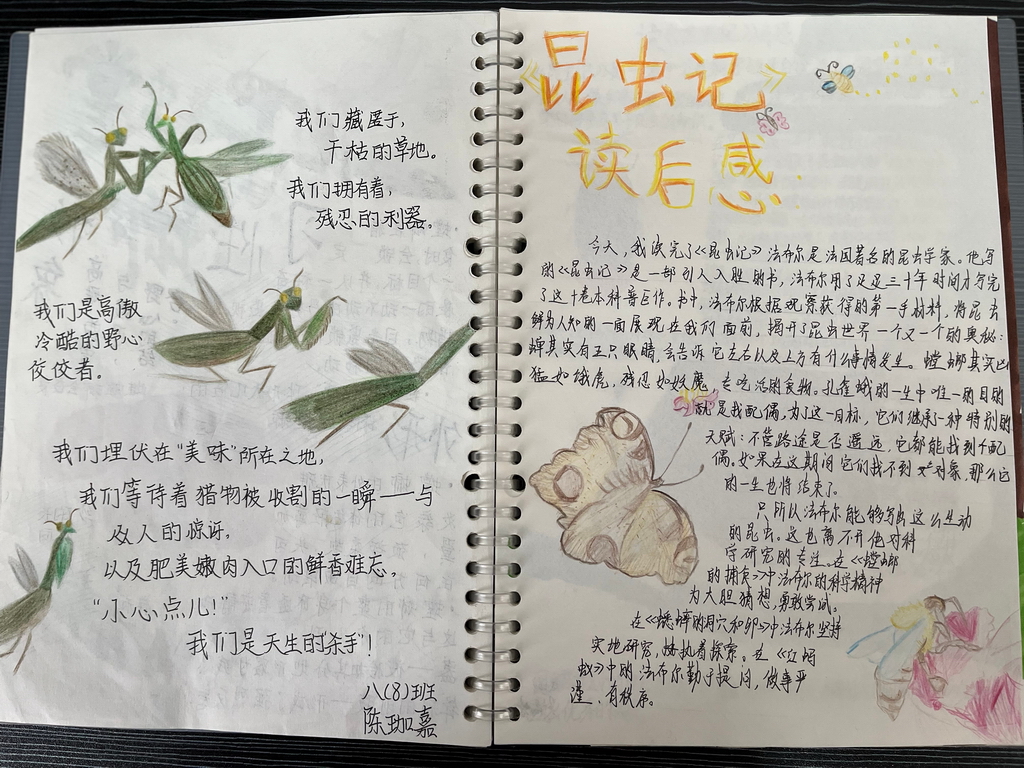 我们藏匿于，
干枯的草地。
我们拥有着，
残忍的利器。
我们是高傲
冷酷的野心
佼佼者。
我们埋伏在“美味”所在之地，
我们等待着猎物被收割的一瞬——与
及人的惊讶，
以及肥美嫩肉入口的鲜香难忘。
“小心点儿！”
我们是天生的“杀手”！
八(8)班
陈珈嘉
《昆虫记》
读后感
今天，我读完了《昆虫记》法布尔是法国著名的昆虫学家。他写
的《昆虫记》是一部引人入胜的书，法布尔用了足足三十年时间才写完
了这十卷本科普巨作。书中，法布尔根据观察获得的第一手材料，将昆虫
鲜为人知的一面展现在我们面前，揭开了昆虫世界一个又一个的奥秘：
蝉其实有五只眼睛，会告诉它左右以及上方有什么事情发生。螳螂其实凶
猛如饿虎，残忍如妖魔，专吃活的食物。孔雀蛾的一生中唯一的目的
就是找配偶，为了这一目标，它们继承了一种特别的
天赋：不管路途是否遥远，它都能找到个配
偶。如果在这期间它们找不到对象，那么它
的一生也将结束了。
只所以法布尔能够写出这么生动
的昆虫。这也离不开他对科
学研究的专注。在《螳螂
的捕食》中法布尔的科学精神
为大胆猜想，勇敢尝试。
在《蟋蟀的洞穴和卵》中法布尔坚持
实地研究，执着探索。在《红蚂
蚁》中的法布尔勤于提问，做事严
谨、有秩序。